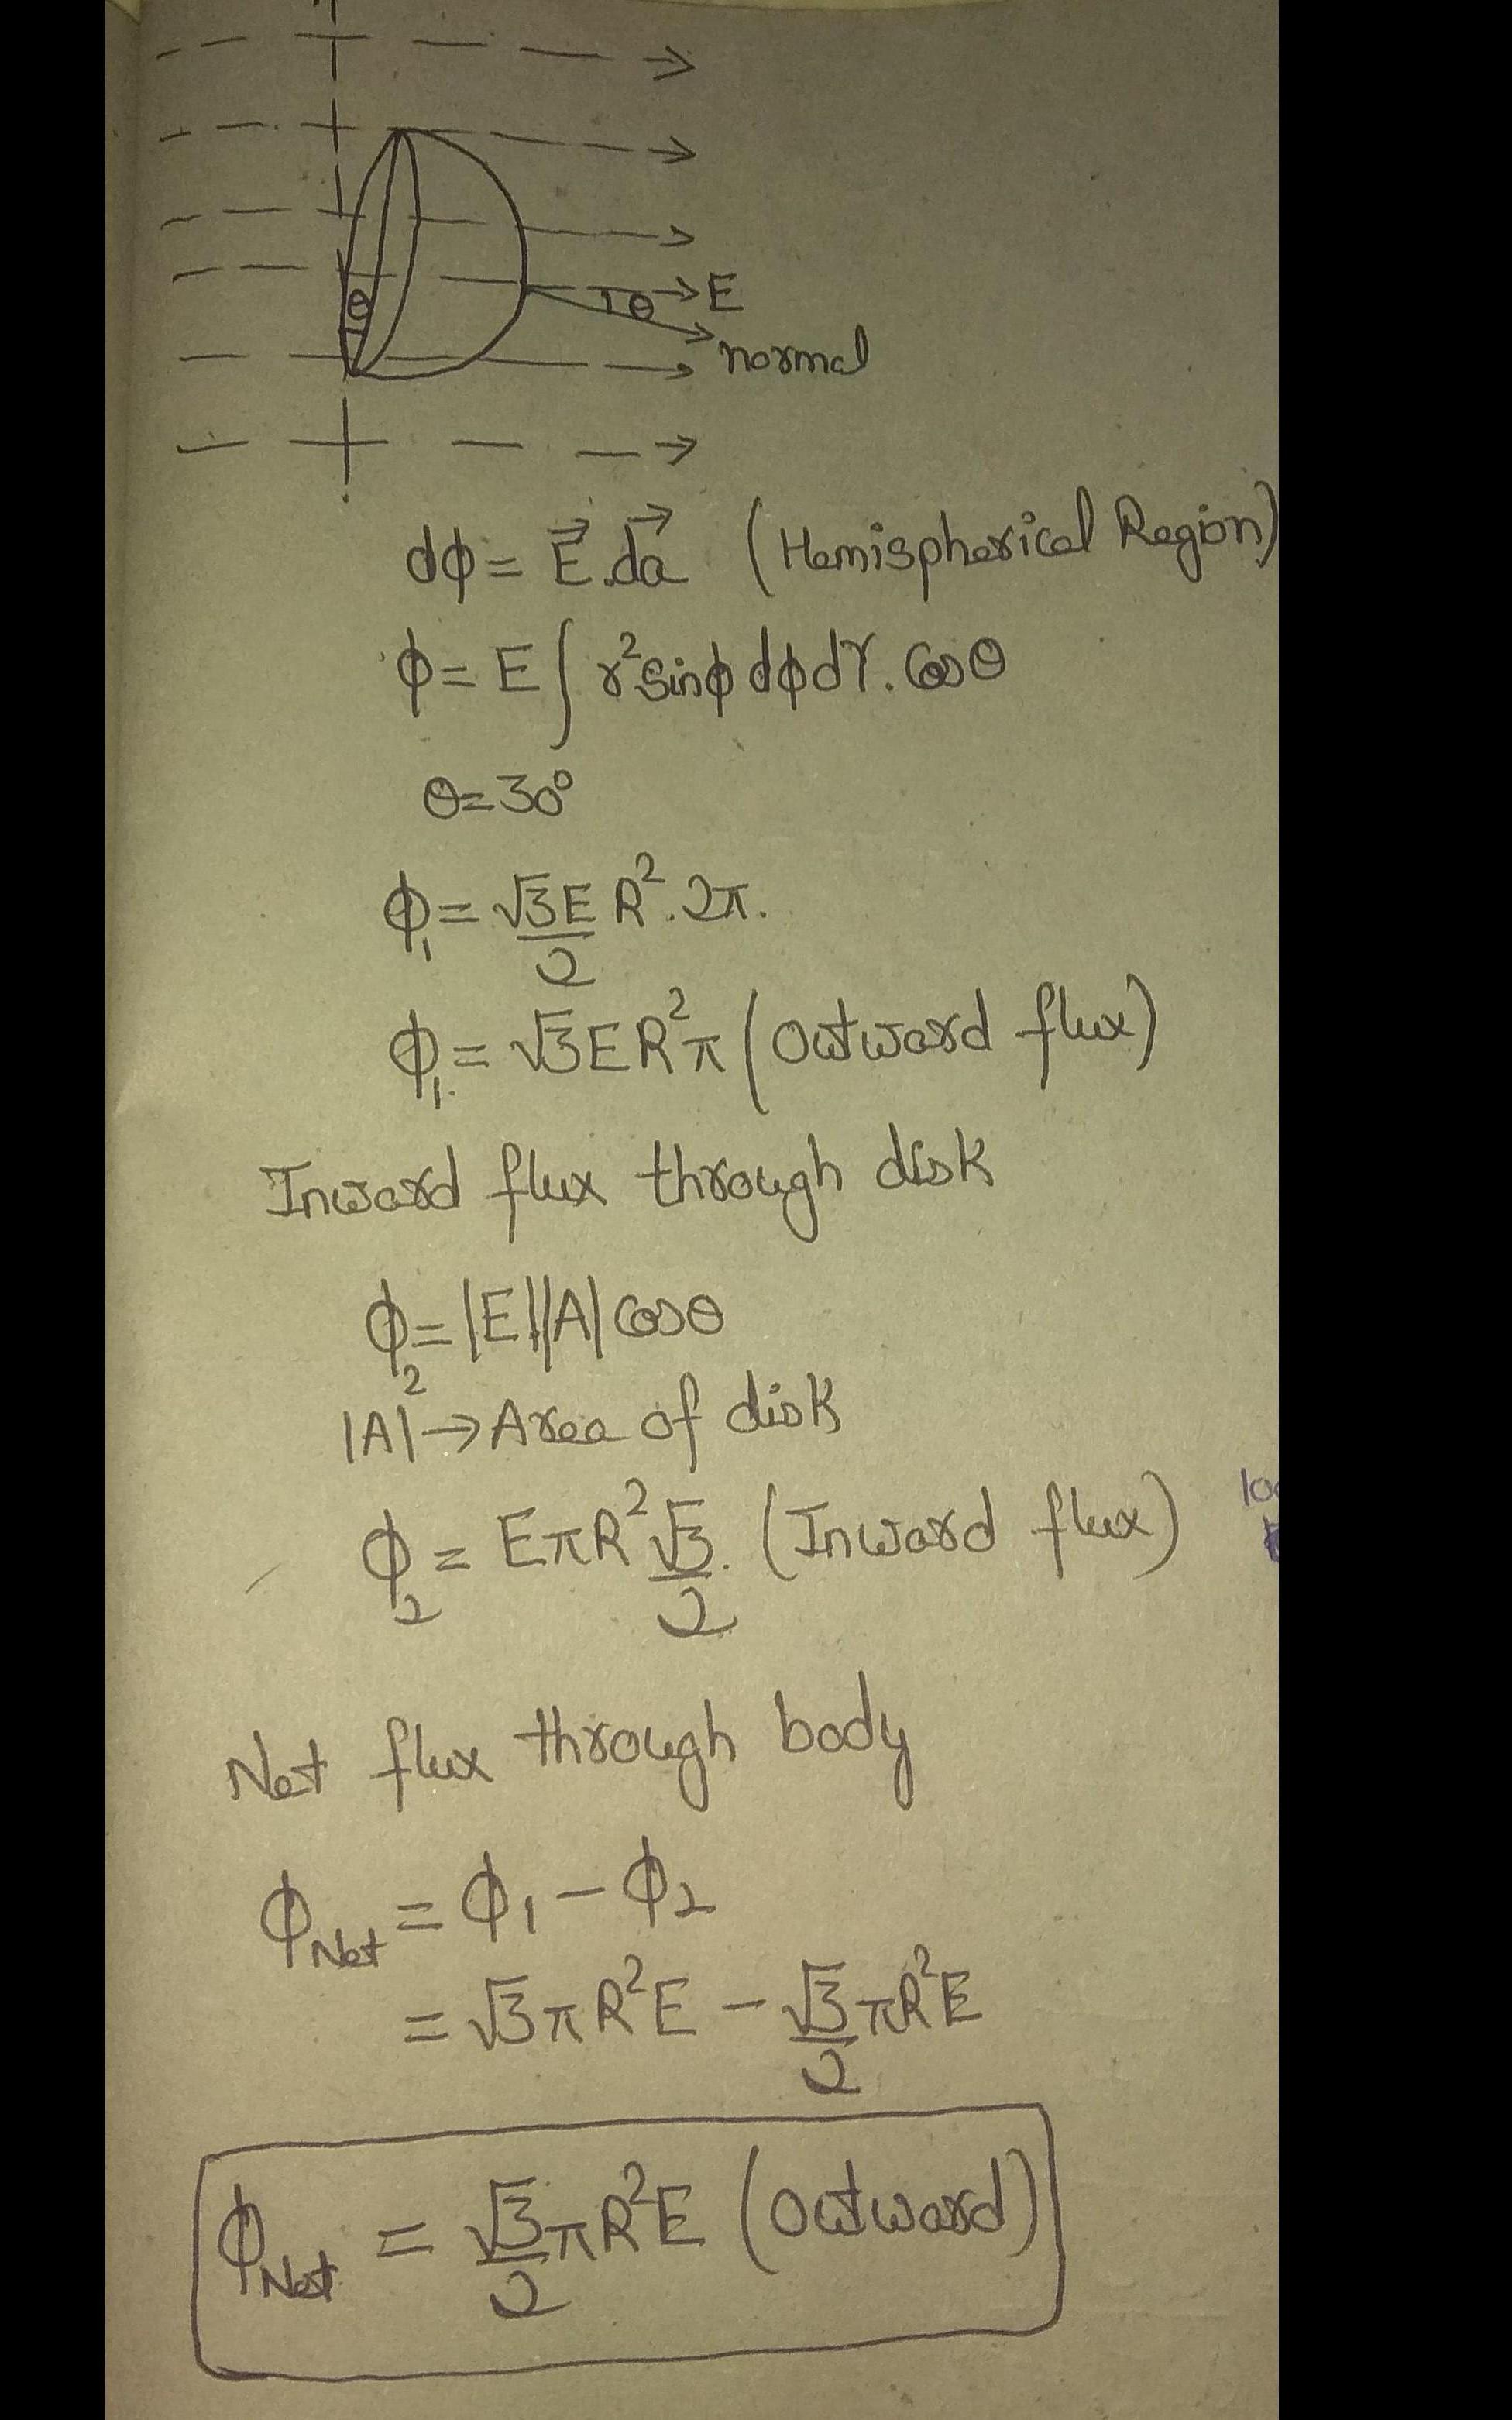 θ
θ
E
normal
dϕ = E⃗.da⃗ (Hemispherical Region)
ϕ = E ∫ r² sinϕ dϕ dr. Cosθ
θ = 30°
ϕ₁ = √3E/2 R². 2π.
ϕ₁. = √3 E R² π (Outward flux)
Inward flux through disk
ϕ₂ = |E||A| cosθ
|A| → Area of disk
ϕ₂ = EπR² √3/2. (Inward flux)
Net flux through body
ϕNet = ϕ₁ - ϕ₂
= √3 π R² E - √3/2 πR²E
ϕNet = √3/2 πR²E (Outward)